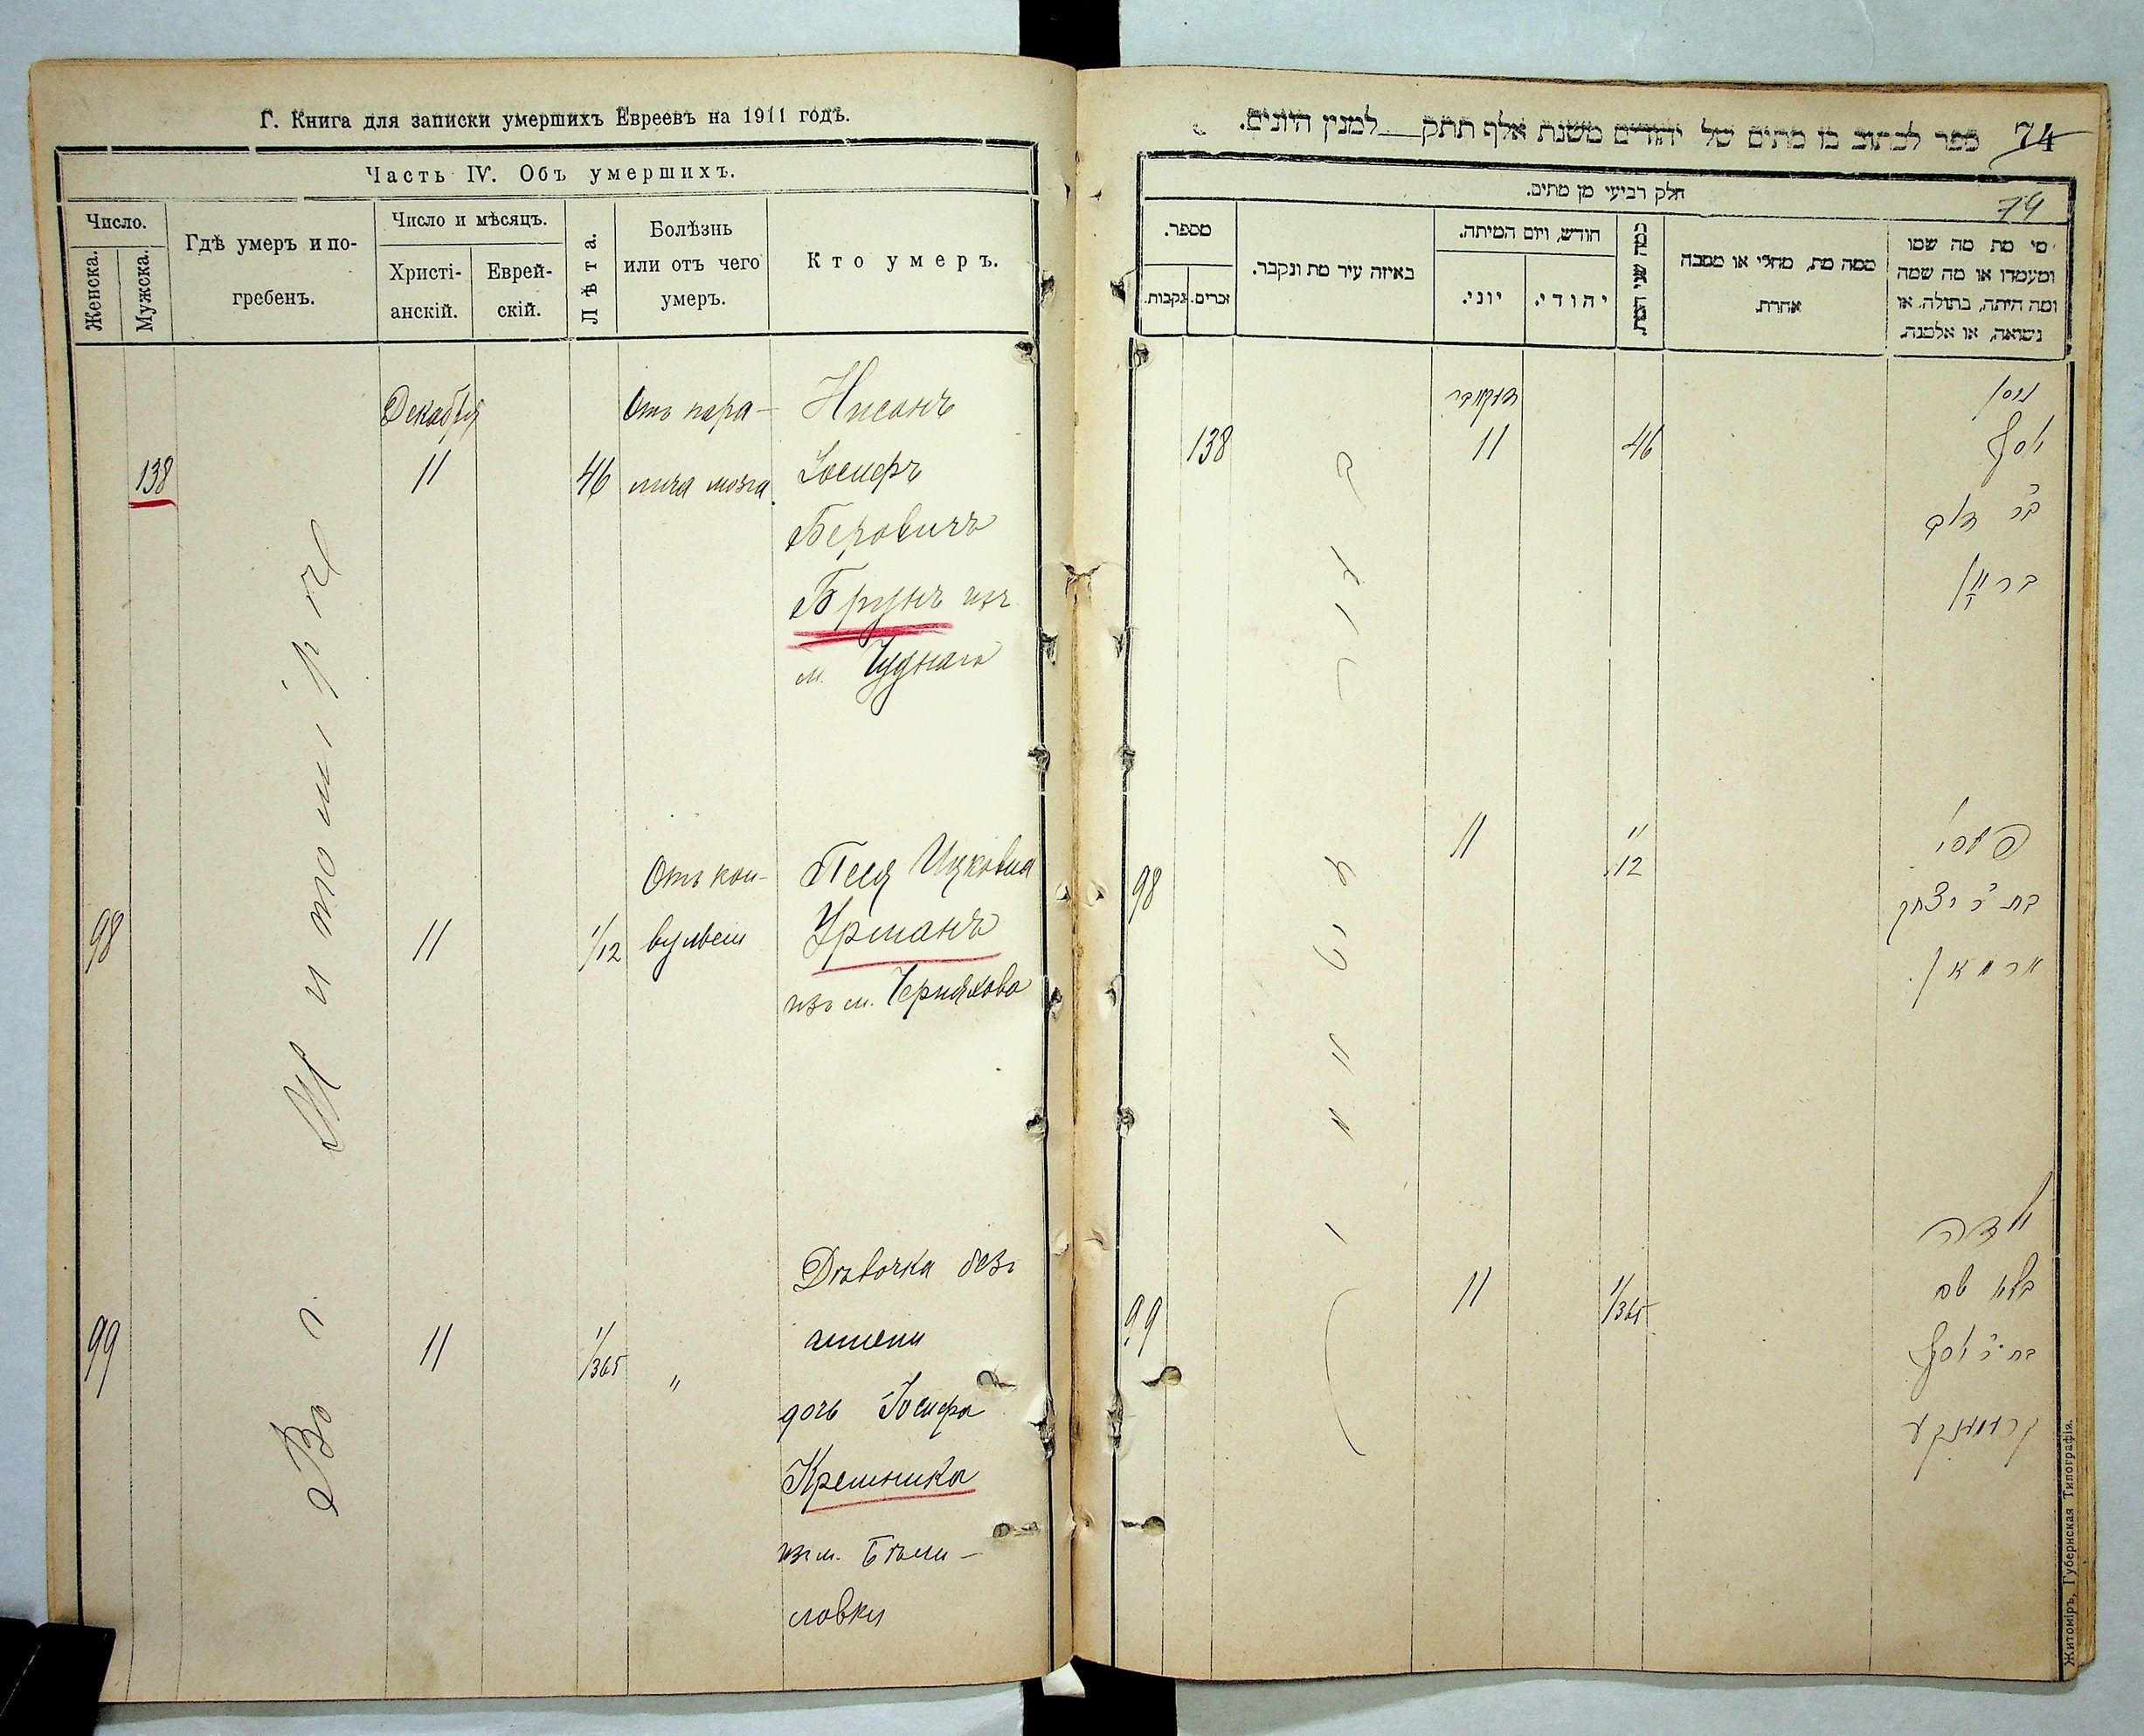 Г. Книга для записки умершихъ Евреевъ на 1911 годъ.
Часть IV. Объ умершихъ.
Число.
Женска.
Мужска.
Гдѣ умеръ и по-
гребенъ.
Число и мѣсяцъ.
Христі-
анскій.
Еврей-
скій.
Лѣта.
Болѣзнь
или отъ чего
умеръ.
Кто умеръ.
Въ г. Житомірѣ
138
Декабря
11
46
Отъ пара-
лича мозга
Нисонъ
Іосифъ
Беровичъ
Брунъ изъ
м. Чуднаго
98
11
1/12
Отъ кон-
вульсіи
Песя Ицковна
Урманъ
изъ м. Черняхова
99
11
1/365
"
Дѣвочка безъ
имени
дочь Іосифа
Кремника
изъ м. Бѣли-
ловки
ספר לכתוב בו מתים של יהודים משנת אלף תתק למנין היונים.
74
74
חלק רביעי מן מתים.
מספר.
נקבות.
זכרים.
באיזה עיר מת ונקבר.
חודש, ויום המיתה.
יוני.
יהודי.
כמה שני המת.
ממה מת, מחלי או מסבה
אחרת.
מי מת מה שמו
ומעמדו או מה שמה
ומה היתה, בתולה, או
נשואה, או אלמנה.
138
דעקאבר
11
46
ניסן
יוסף
ב"ר דוב
ברוין
98
11
1/12
פעסי
בת ר' יצחק
אורמאן.
99
11
1/365
ילדה
בלא שם
בת ר' יוסף
Житоміръ, Губернская Типографія.